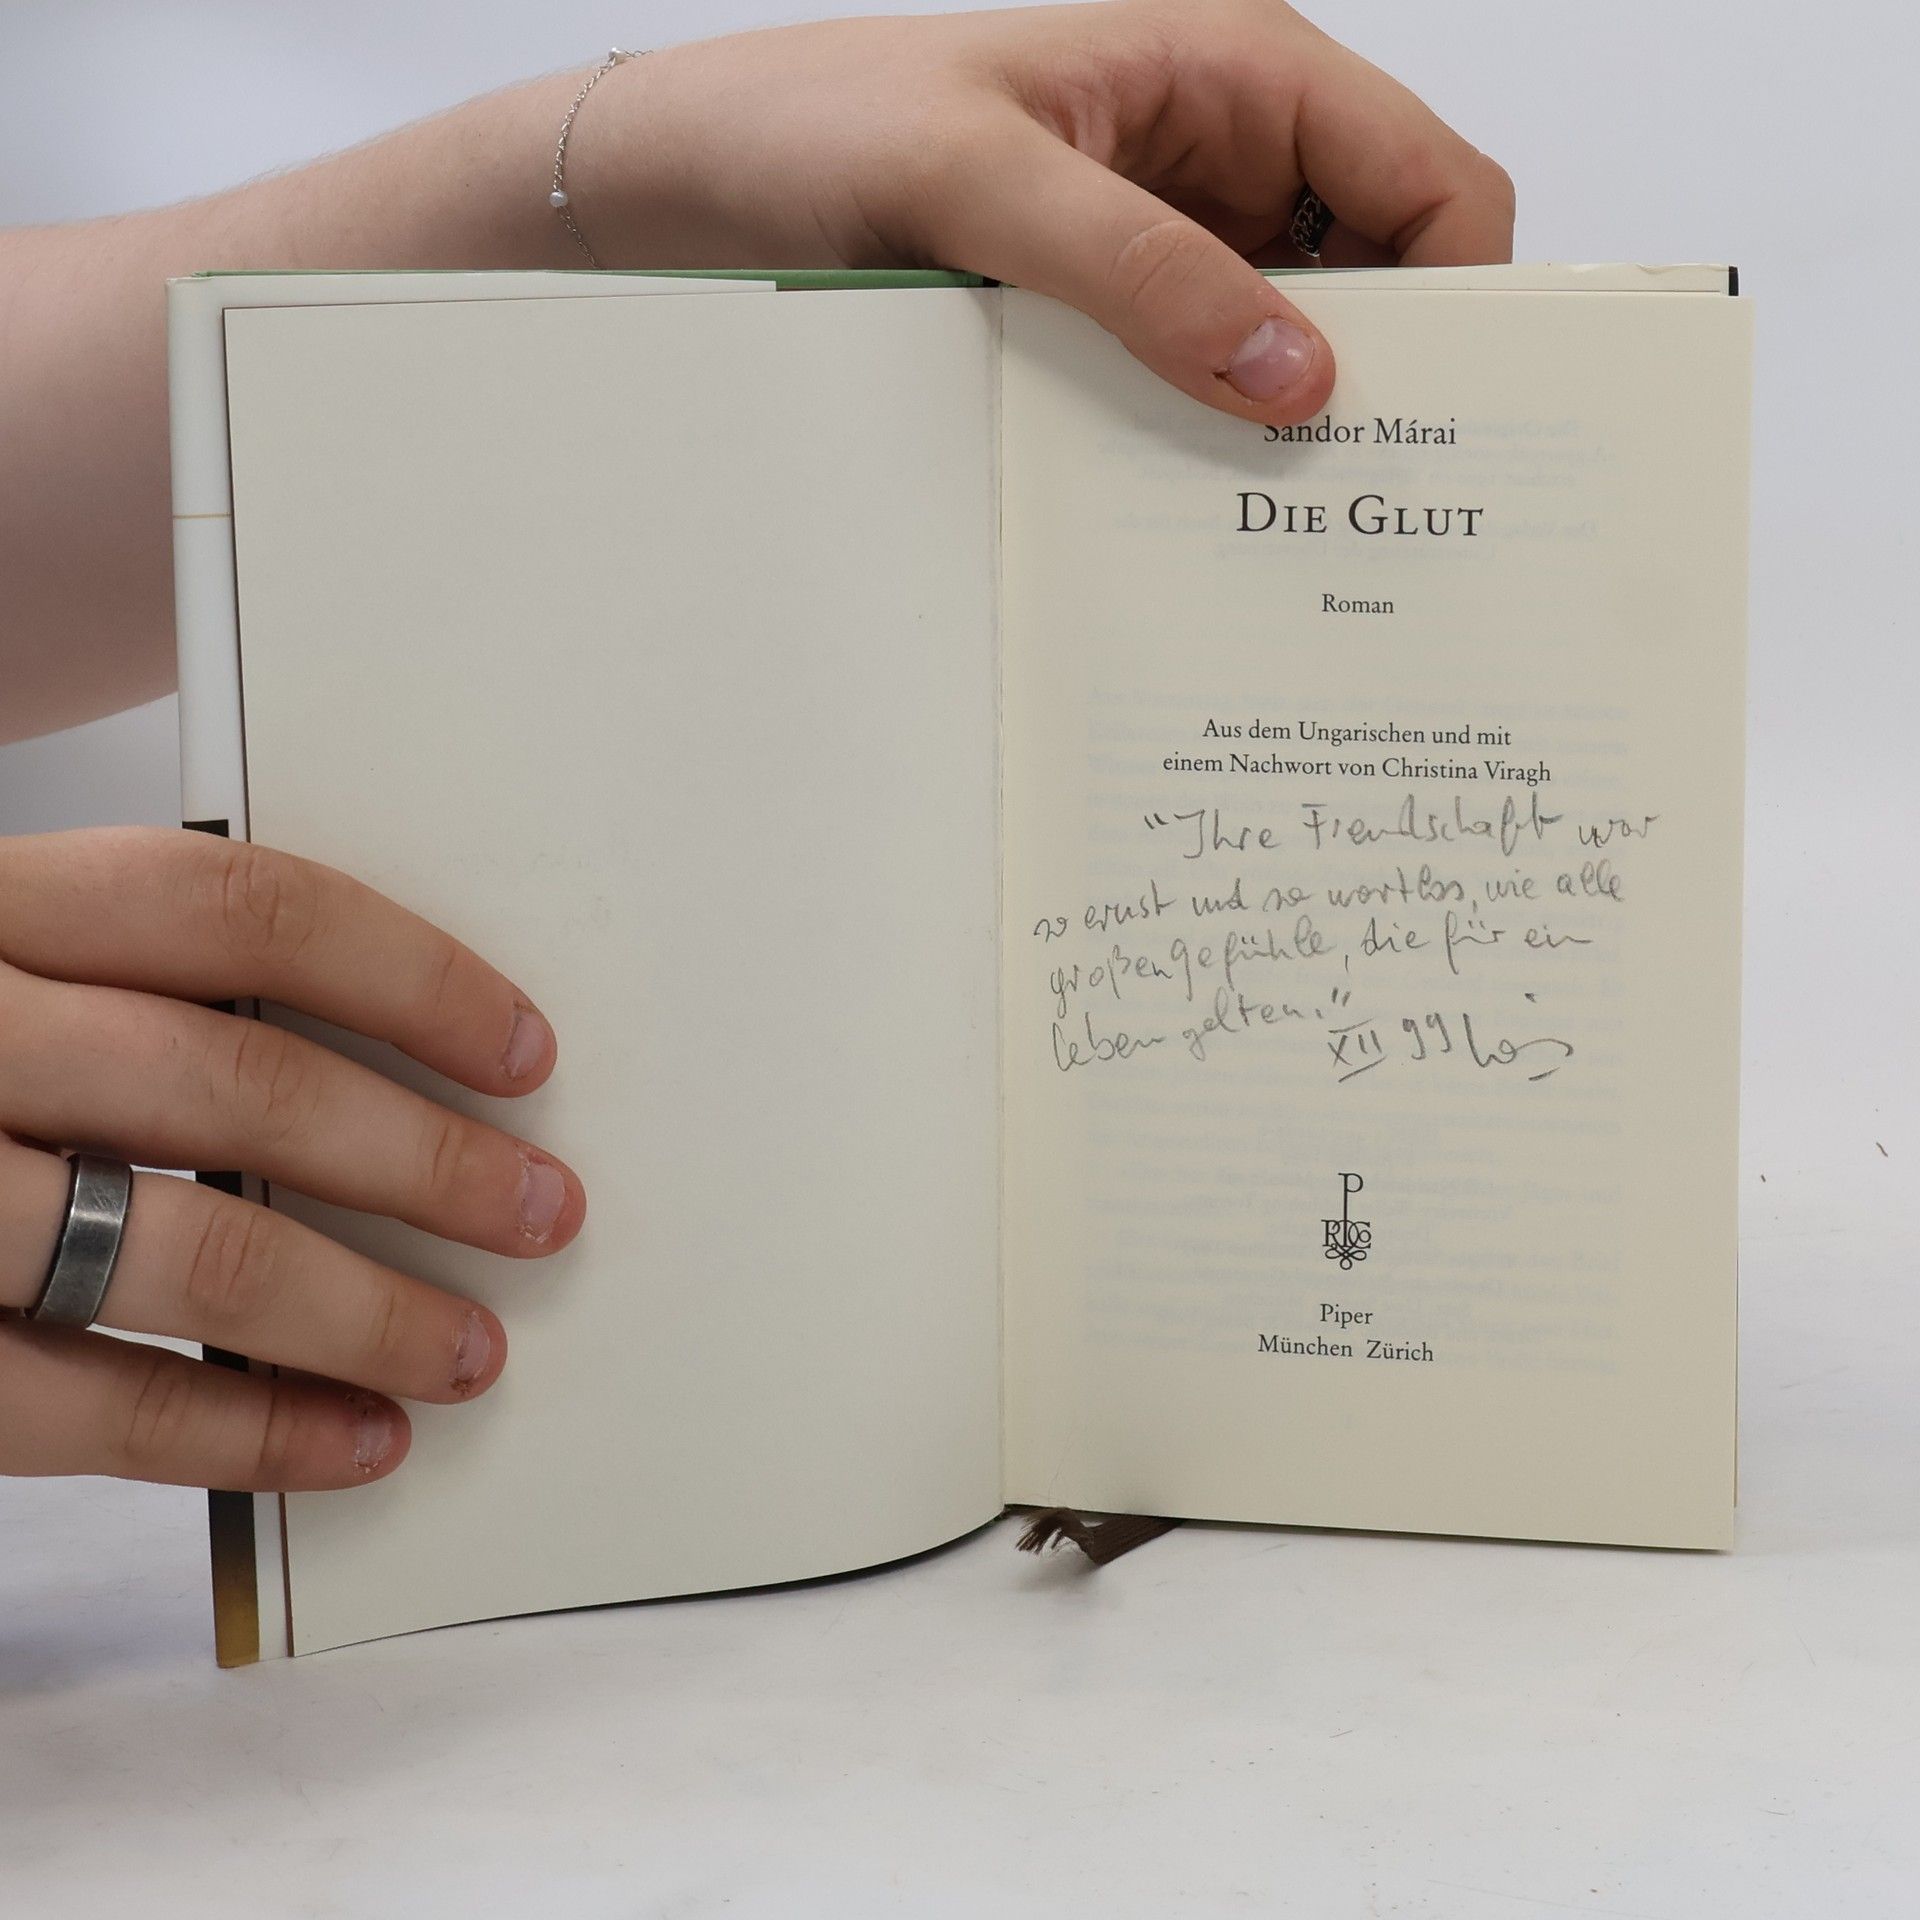 Sándor Márai
DIE GLUT
Roman
Aus dem Ungarischen und mit
einem Nachwort von Christina Viragh
"Ihre Freundschaft war
so ernst und so wortlos, wie alle
großen Gefühle, die für ein
Leben gelten."
XII 99
P
RPCo
Piper
München Zürich